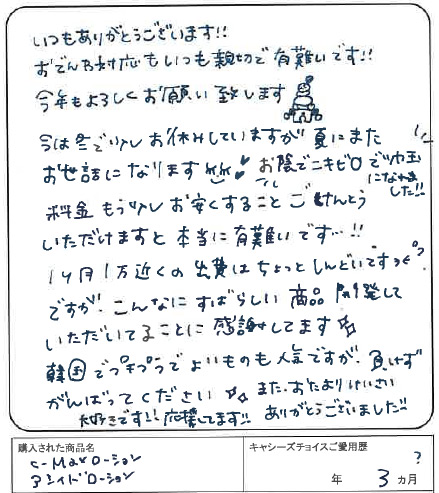 いつもありがとうございます!!
おでんわ対応もいつも親切で有難いです!!
今年もよろしくお願い致します
今は冬で少しお休みしていますが夏にまた
お世話になります お陰でニキビ0で
になれました!!
料金もう少しお安くすることごけんとう
いただけますと本当に有難いです…!!
1ヶ月1万近くの出費はちょっとしんどいですって?
ですが、こんなにすばらしい商品開発して
いただいてることに感謝してます
韓国でプチプラでよいものも人気ですが、負けず
がんばってください また、おたより下さい
大好きです!!応援してます!! ありがとうございました!!
購入された商品名
C-Maxローション
アシッドローション
キャシーズチョイスご愛用歴
?
年 3ヵ月